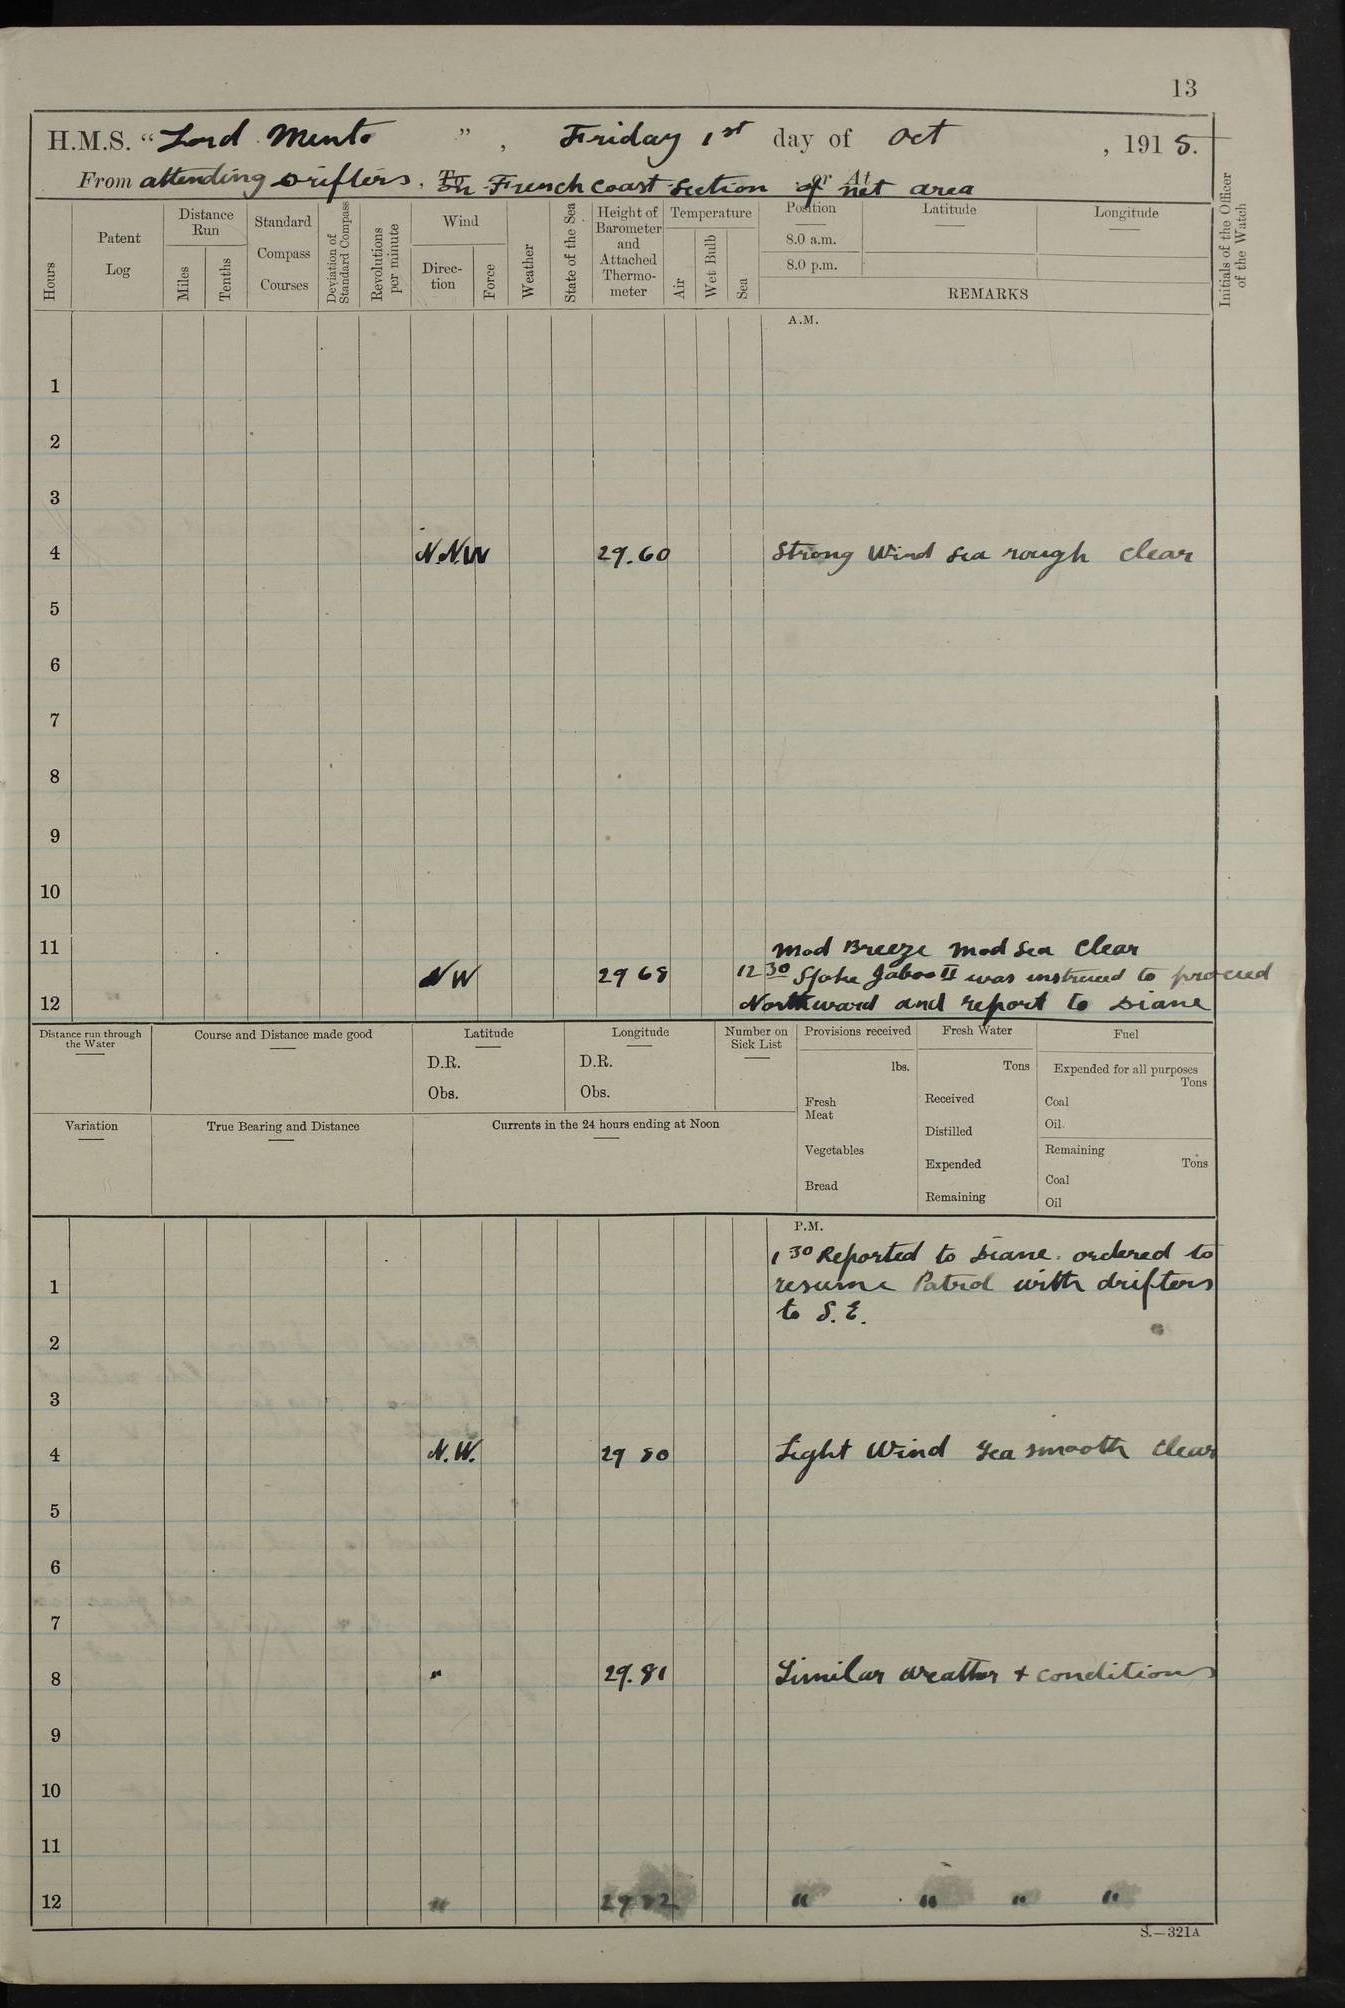 13
H.M.S. "Lord Minto", Friday 1st day of Oct, 1915.
From attending Drifters. To On French Coast Section or At of net area
Hours
Patent Log
Distance Run
Miles
Tenths
Standard Compass Courses
Deviation of Standard Compass
Revolutions per minute
Wind
Direction
Force
Weather
State of the Sea
Height of Barometer and Attached Thermometer
Temperature
Air
Wet Bulb
Sea
Position
8.0 a.m.
8.0 p.m.
Latitude
Longitude
REMARKS
Initials of the Officer of the Watch
A.M.
1
2
3
4 N.N.W 29.60 Strong Wind Sea rough clear
5
6
7
8
9
10
11 Mod Breeze Mod Sea Clear
NW 29 68 12 30 Spoke II was instruced to proceed
12 Northward and report to Diane
Distance run through the Water
Course and Distance made good
Latitude
D.R.
Obs.
Longitude
D.R.
Obs.
Number on Sick List
Provisions received
lbs.
Fresh Meat
Vegetables
Bread
Fresh Water
Tons
Received
Distilled
Expended
Remaining
Fuel
Expended for all purposes
Tons
Coal
Oil.
Remaining
Tons
Coal
Oil
Variation
True Bearing and Distance
Currents in the 24 hours ending at Noon
P.M.
1 30 Reported to Diane. ordered to
1 resume Patrol with drifters
to S.E.
2
3
4 N.W. 29 80 Light Wind Sea smooth Clear
5
6
7
8 " 29.81 Similar weather + conditions
9
10
11
12 " 29 82 " " " "
S.—321A